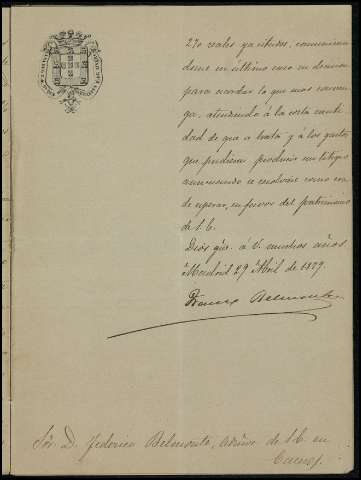 270 reales ya citados, comunican
dome en último caso su decision
para acordar lo que mas conven
ga, atendiendo á la corta canti
dad de que se trata y á los gastos
que pudiera producir un litigio
aun cuando se resolviese como era
de esperar, en favor del patrimonio
de S. E.
Dios gûe. á V. muchos años
Madrid 29 Abril de 1879.
Belmonte
Sôr. D. Federico Belmonte, Admôr de S. E. en